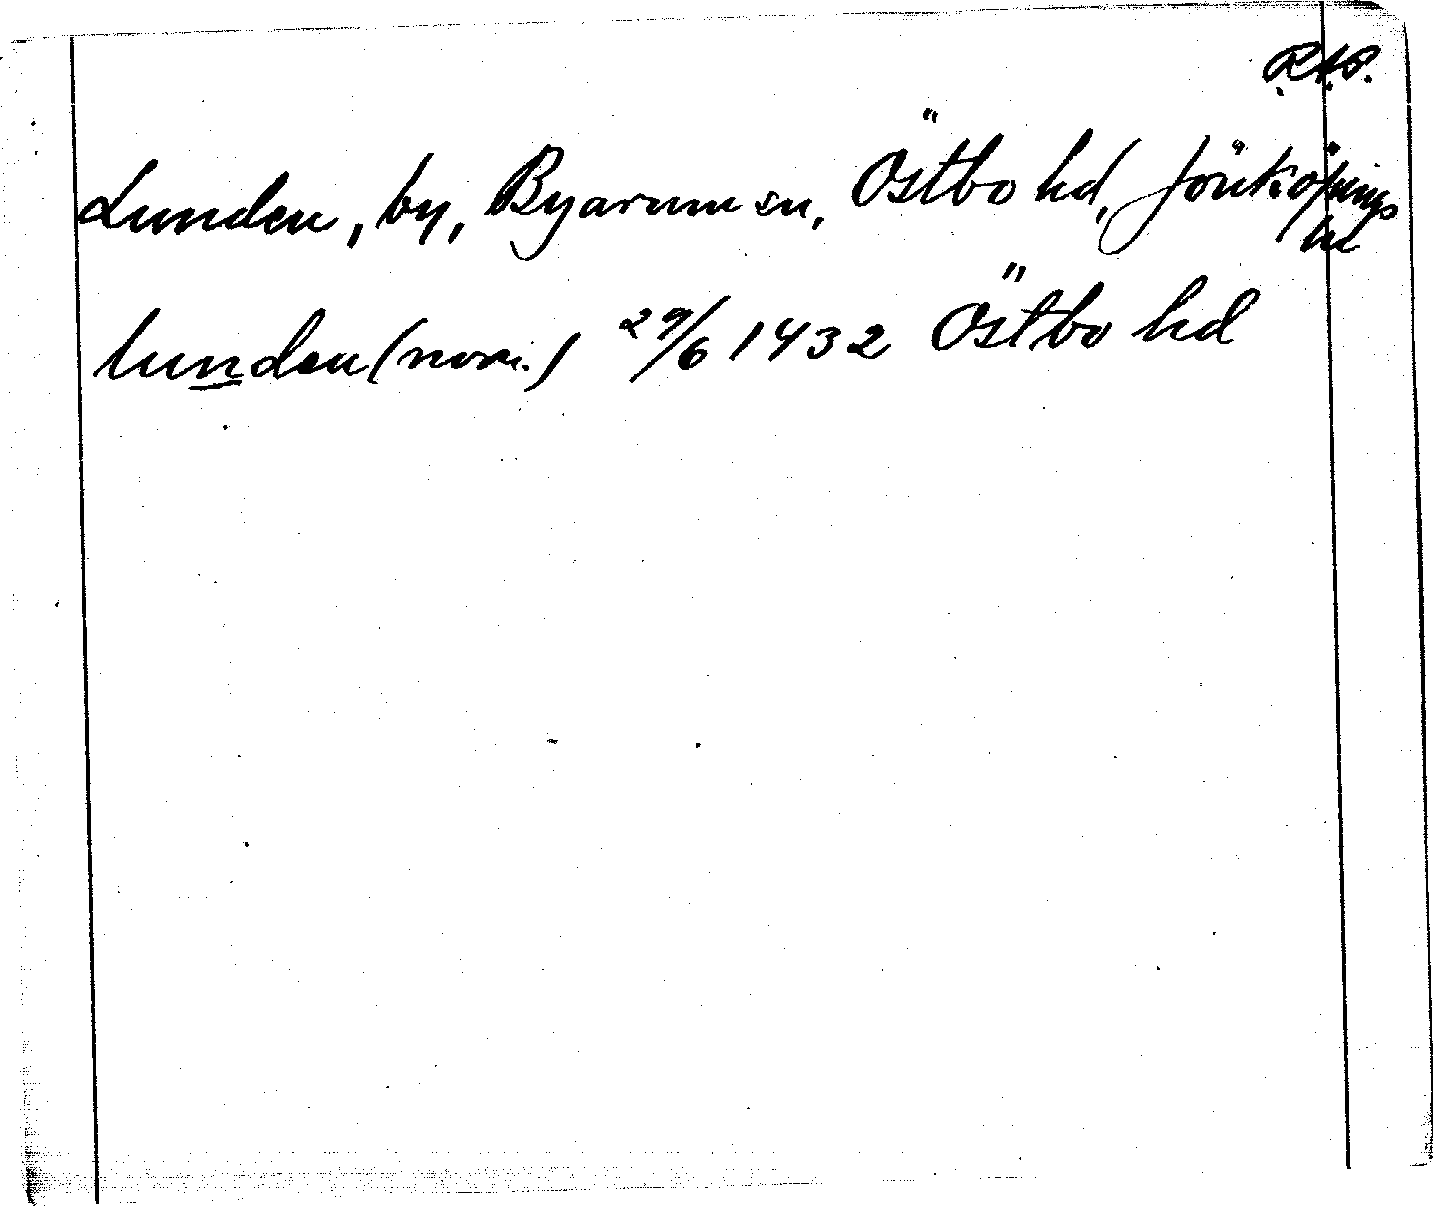 R.A.P.
Lunden, by, Byarum sn, Östbo hd, Jönköpings
län
lunden (nom.) 29/6 1432 Östbo hd